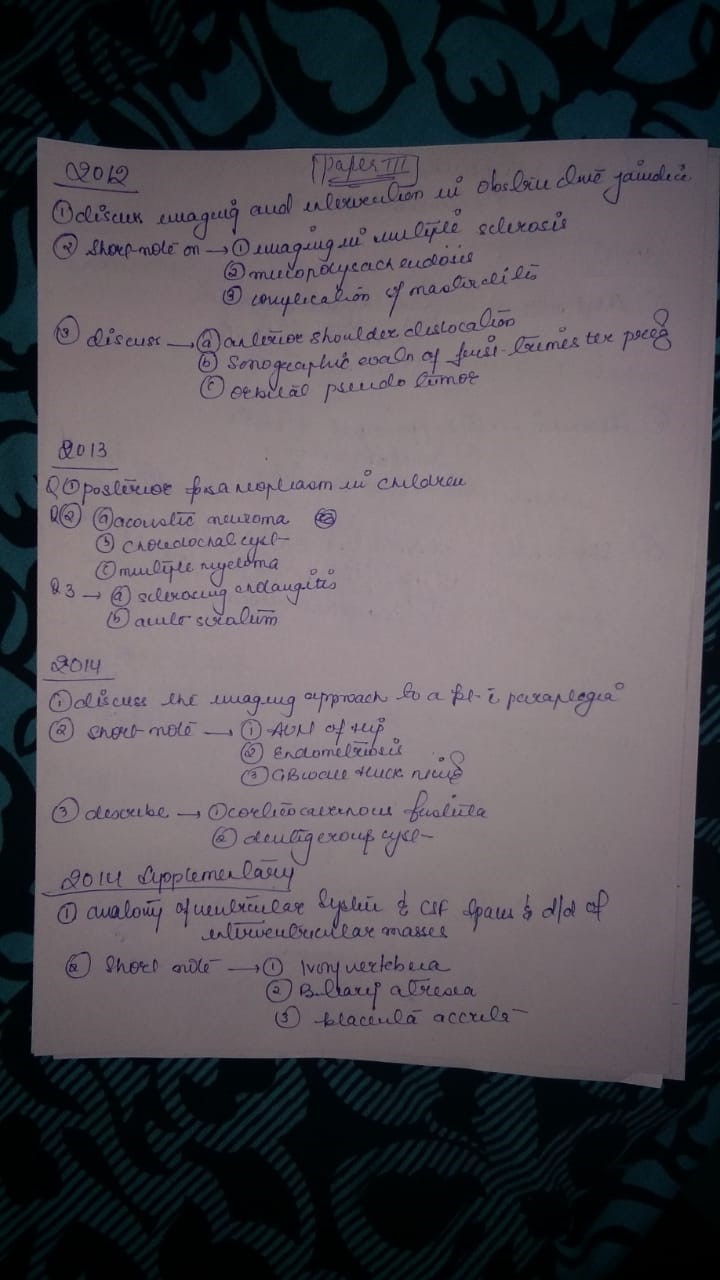 Paper III
2012
① discuss imaging and intervention in obstructive jaundice
② Short note on → ① imaging in multiple sclerosis
② mucopolysacharidosis
③ complication of mastoiditis
③ discuss → ⓐ anterior shoulder dislocation
ⓑ Sonographic evaln of first trimester preg
ⓒ orbital pseudo tumor
2013
Q① posterior fossa neoplasm in children
Q② ⓐ acoustic neuroma
ⓑ choledochal cyst
ⓒ multiple myeloma
Q3 → ⓐ sclerosing cholangitis
ⓑ acute scrotum
2014
① discuss the imaging approach to a pt c̄ paraplegia
② short note → ① AVN of hip
② Endometriosis
③ GB wall thick
③ describe → ① caroticocavernous fistula
② dentigerous cyst
2014 Supplementary
① anatomy of ventricular system & CSF spaces & d/d of
intraventricular masses
② Short note → ① Ivory vertebra
② Biliary atresia
③ placenta accreta